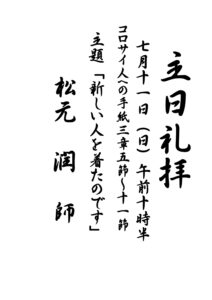 主日礼拝
七月十一日（日）午前十時半
コロサイ人への手紙三章五節〜十一節
主題「新しい人を着たのです」
松元　潤　師